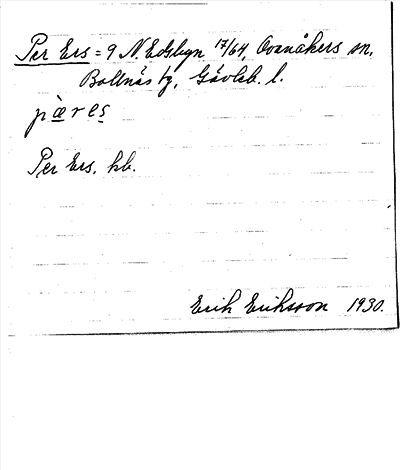 Per Ers = 9 N. Edsbyn 17/64, Ovanåkers sn,
Bollnäs tg, Gävleb. l.
pæ̀res
Per Ers, kb.
Erik Eriksson 1930.